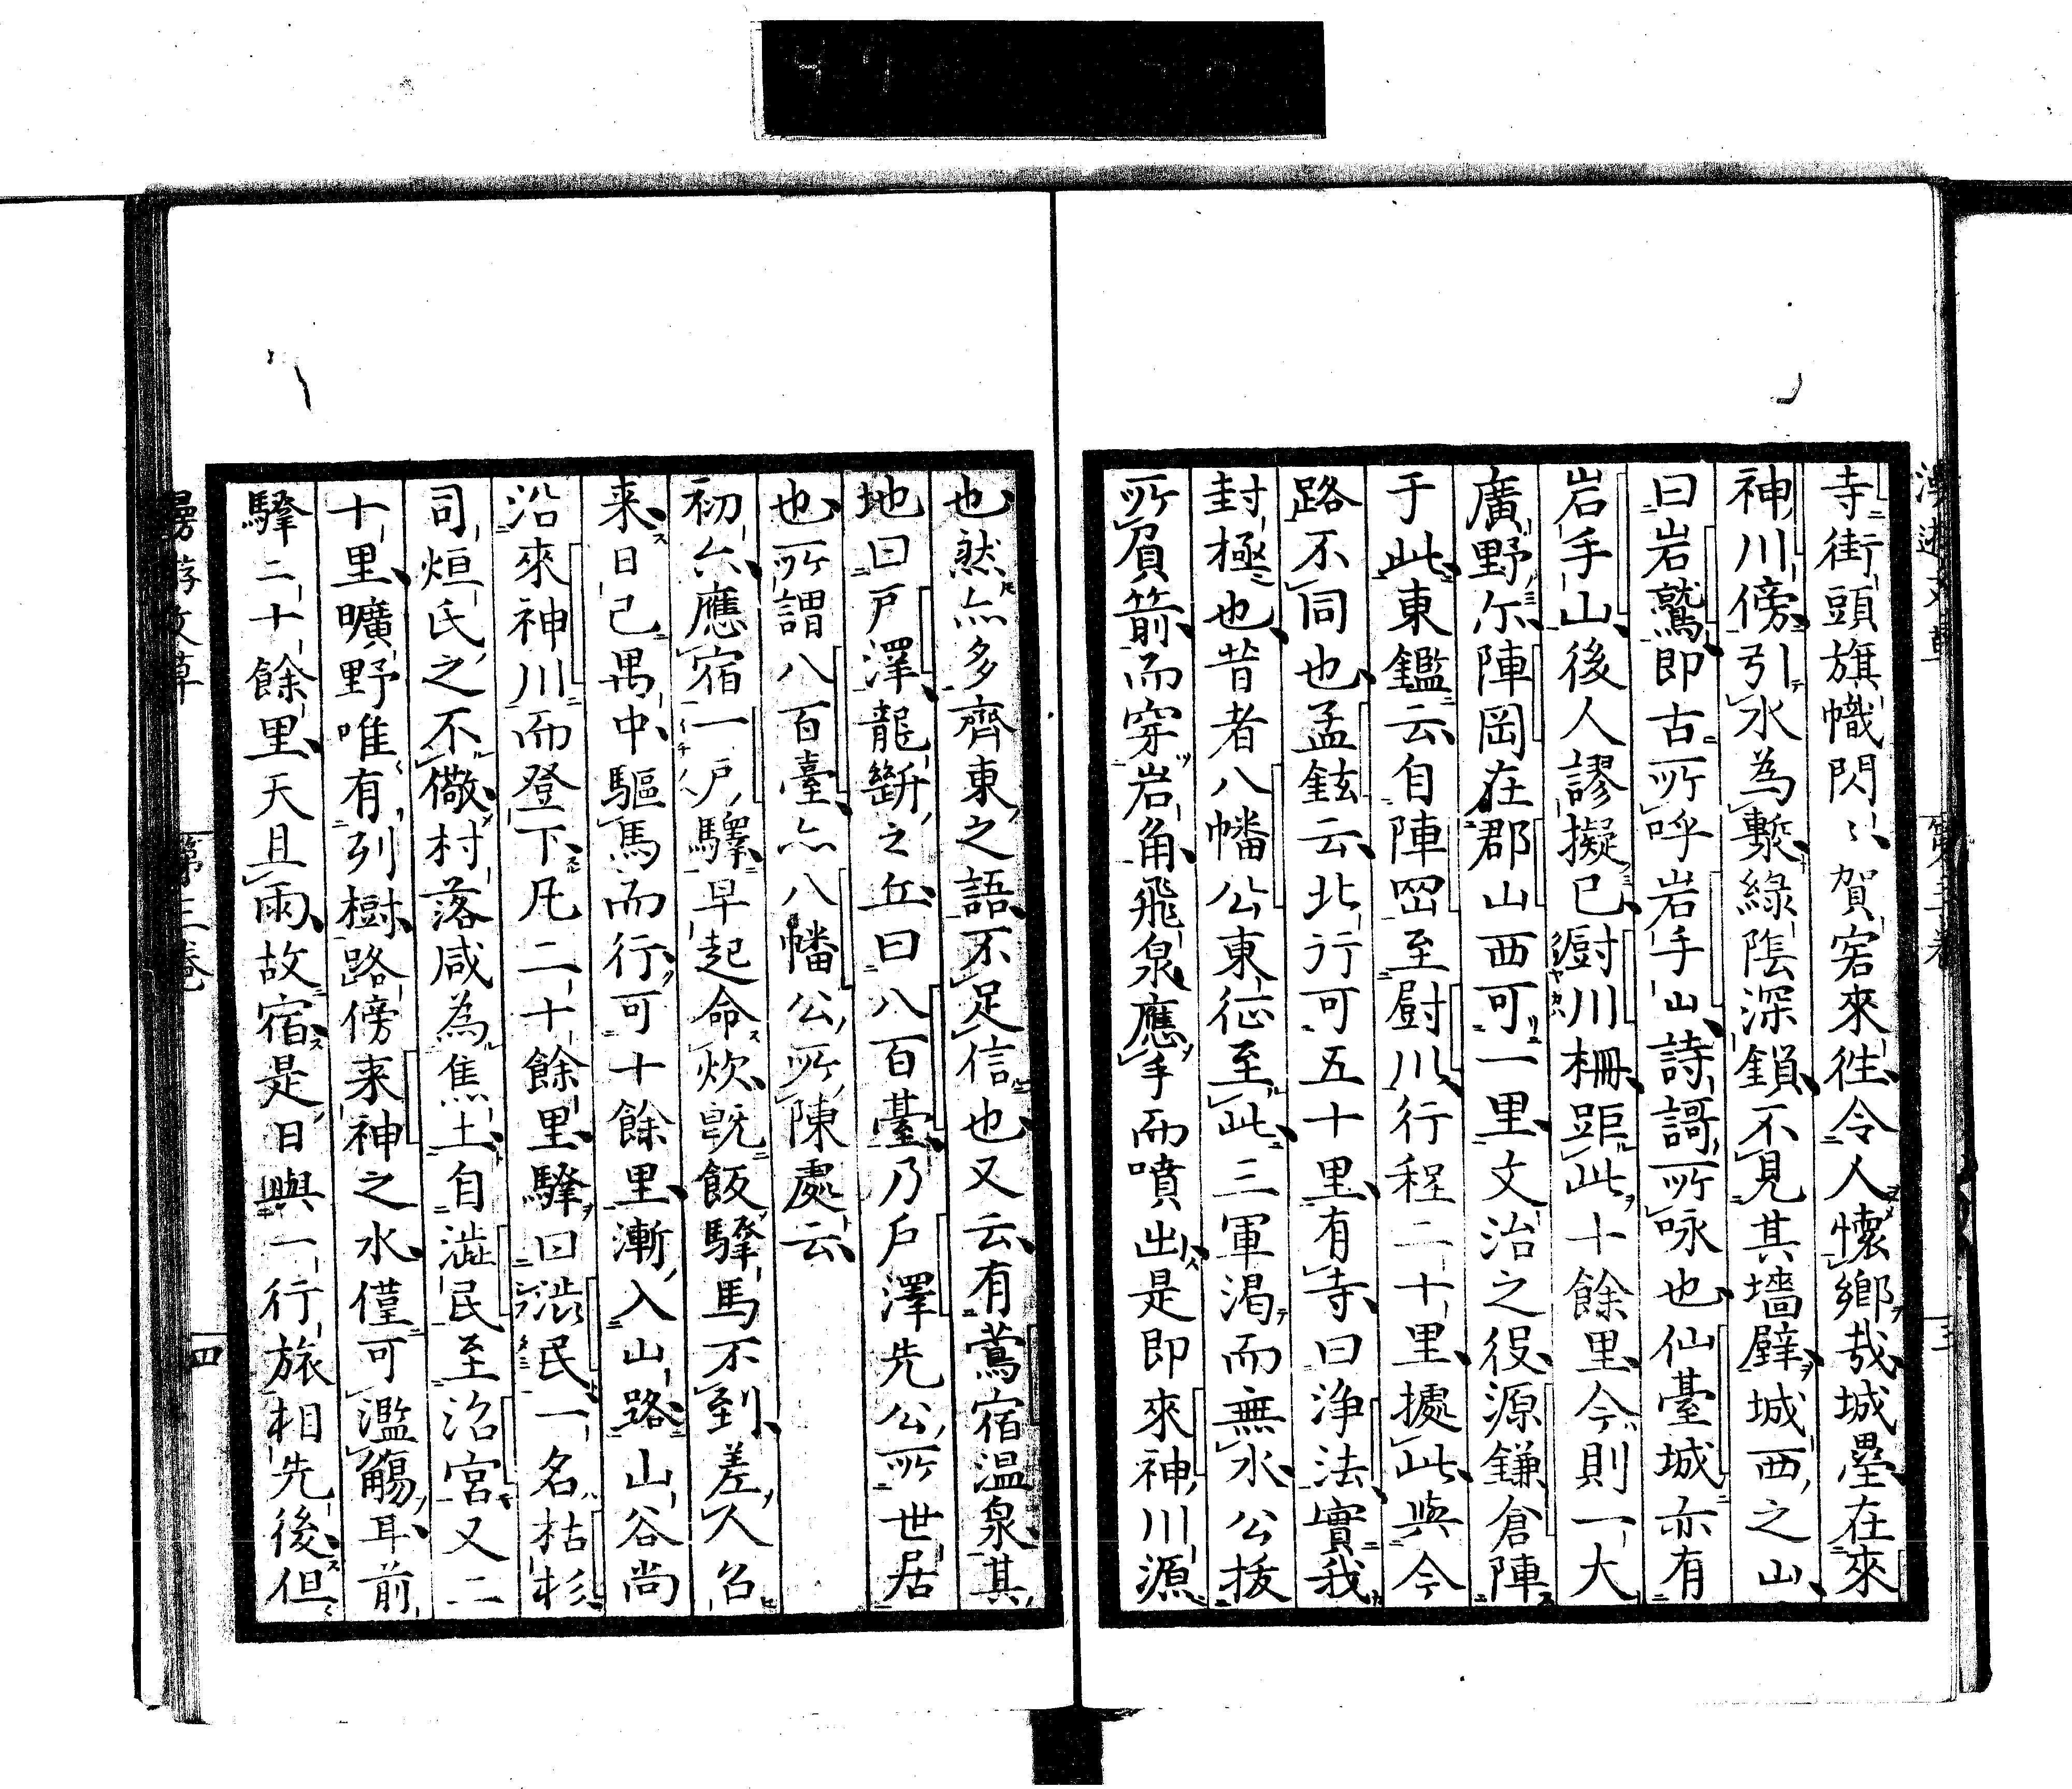 寺街頭旗幟閃〻賀客來徃令人懷鄉哉城壘在來
神川傍引水為塹綠陰深鎖不見其墻壁城西之山
曰岩鷲即古所呼岩手山詩謌所咏也仙臺城亦有
岩手山後人謬擬已厨川柵距此十餘里今則一大
廣野尓陣岡在郡山西可一里文治之役源鎌倉陣
于此東鑑云自陣岡至厨川行程二十里據此與今
路不同也孟鉉云北行可五十里有寺曰浄法實我
封極也昔者八幡公東征至此三軍渇而無水公拔
所負箭而穿岩角飛泉應手而噴出是即來神川源
也然亦多齊東之語不足信也又云有鶯宿温泉其
地曰戸澤龍斷之丘曰八百臺乃戶澤先公所世居
也所謂八百臺亦八幡公所陳處云
初六應宿一戸驛早起命炊既飯驛馬不到差人召
来日已禺中驅馬而行可十餘里漸入山路山谷尚
沿來神川而登下凡二十餘里驛曰澁民一名枯杉
司烜氏之不儆村落咸為焦土自澁民至沼宮又二
十里曠野唯有列樹路傍来神之水僅可濫觴耳前
驛二十餘里天且雨故宿是日與一行旅相先後但
漫游文草 第三巻 四